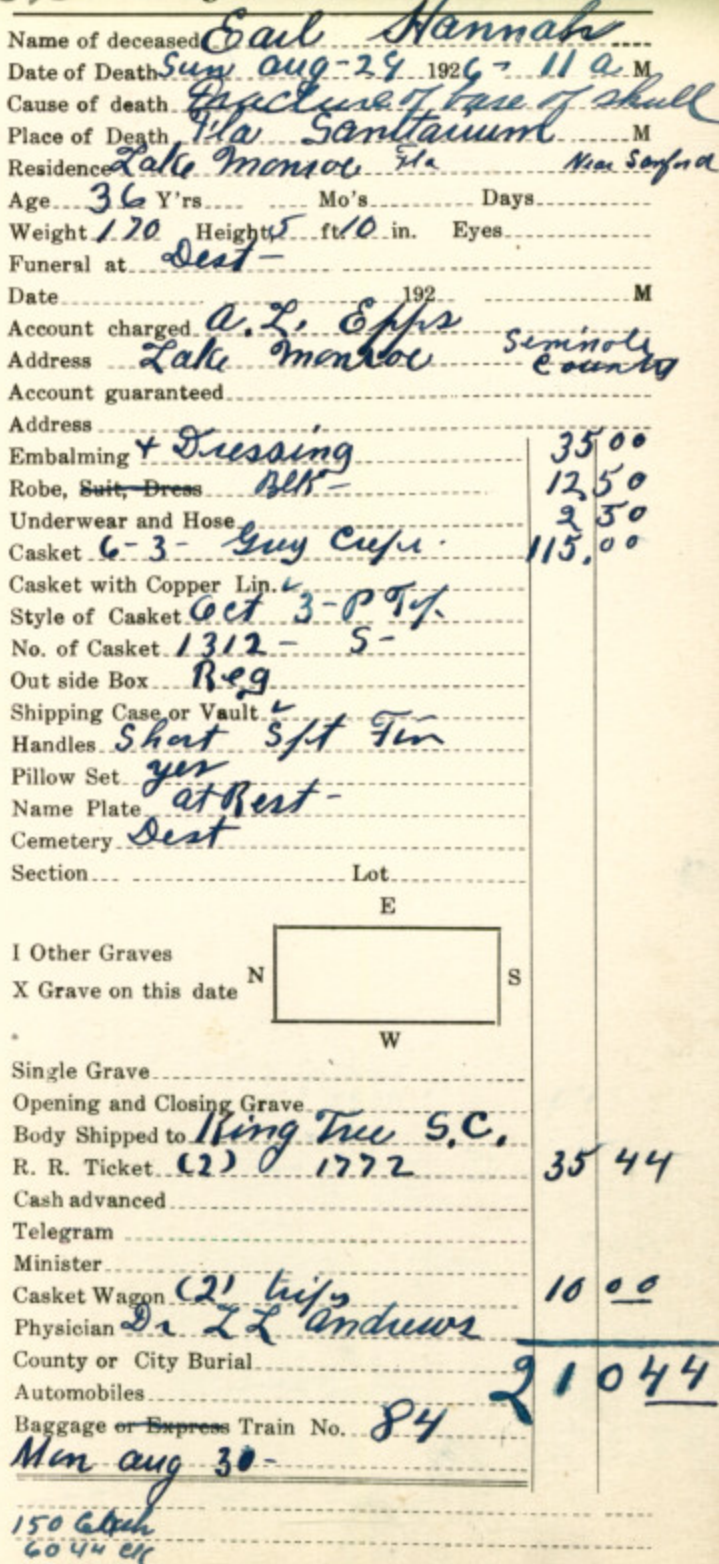 Name of deceased Earl Hannah
Date of Death Sun aug-29 1926- 11 a M
Cause of death Fracture of base of skull
Place of Death Fla Sanitarium M
Residence Lake Monroe Fla Near Sanford
Age 36 Y'rs Mo's Days
Weight 170 Height 5 ft 10 in. Eyes
Funeral at Dest-
Date 192 M
Account charged A. L. Epps
Address Lake Monroe Seminole County
Account guaranteed
Address
Embalming + Dressing 35 00
Robe, Suit, Dress Blk- 12 50
Underwear and Hose 2 50
Casket 6-3- Grey Crepe. 115.00
Casket with Copper Lin.
Style of Casket Oct 3-P
No. of Casket 1312- S-
Out side Box Reg
Shipping Case or Vault
Handles Short
Pillow Set yes
Name Plate at Rest-
Cemetery Dest
Section Lot
E
I Other Graves
N S
X Grave on this date
W
Single Grave
Opening and Closing Grave
Body Shipped to King Tree S.C.
R. R. Ticket (2) 1772 35 44
Cash advanced
Telegram
Minister
Casket Wagon (2) trips 10 00
Physician Dr L L Andrews
County or City Burial 210 44
Automobiles
Baggage or Express Train No. 84
Mon aug 30-
150 Cash
60 44 ck